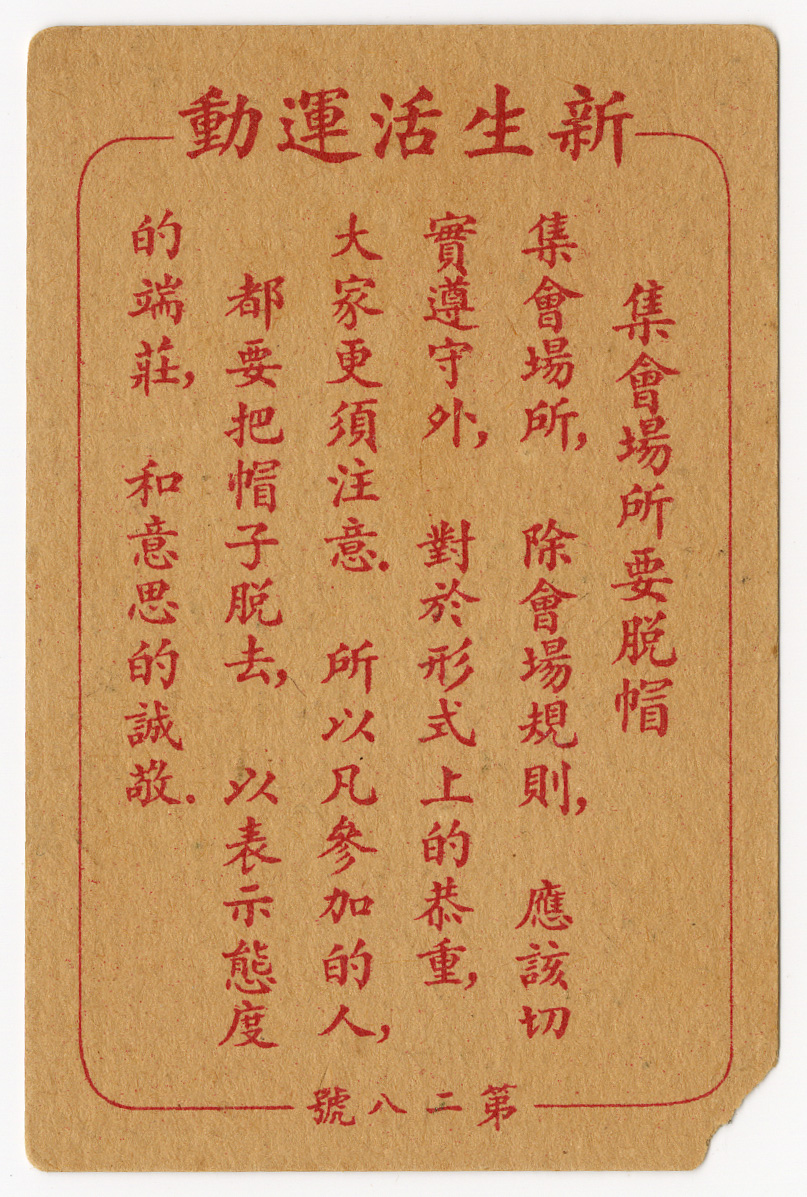 新生活運動
集會場所要脱帽
集會場所，除會場規則，應該切
實遵守外，對於形式上的恭重，
大家更須注意．所以凡參加的人，
都要把帽子脱去，以表示態度
的端莊，和意思的誠敬．
第二八號